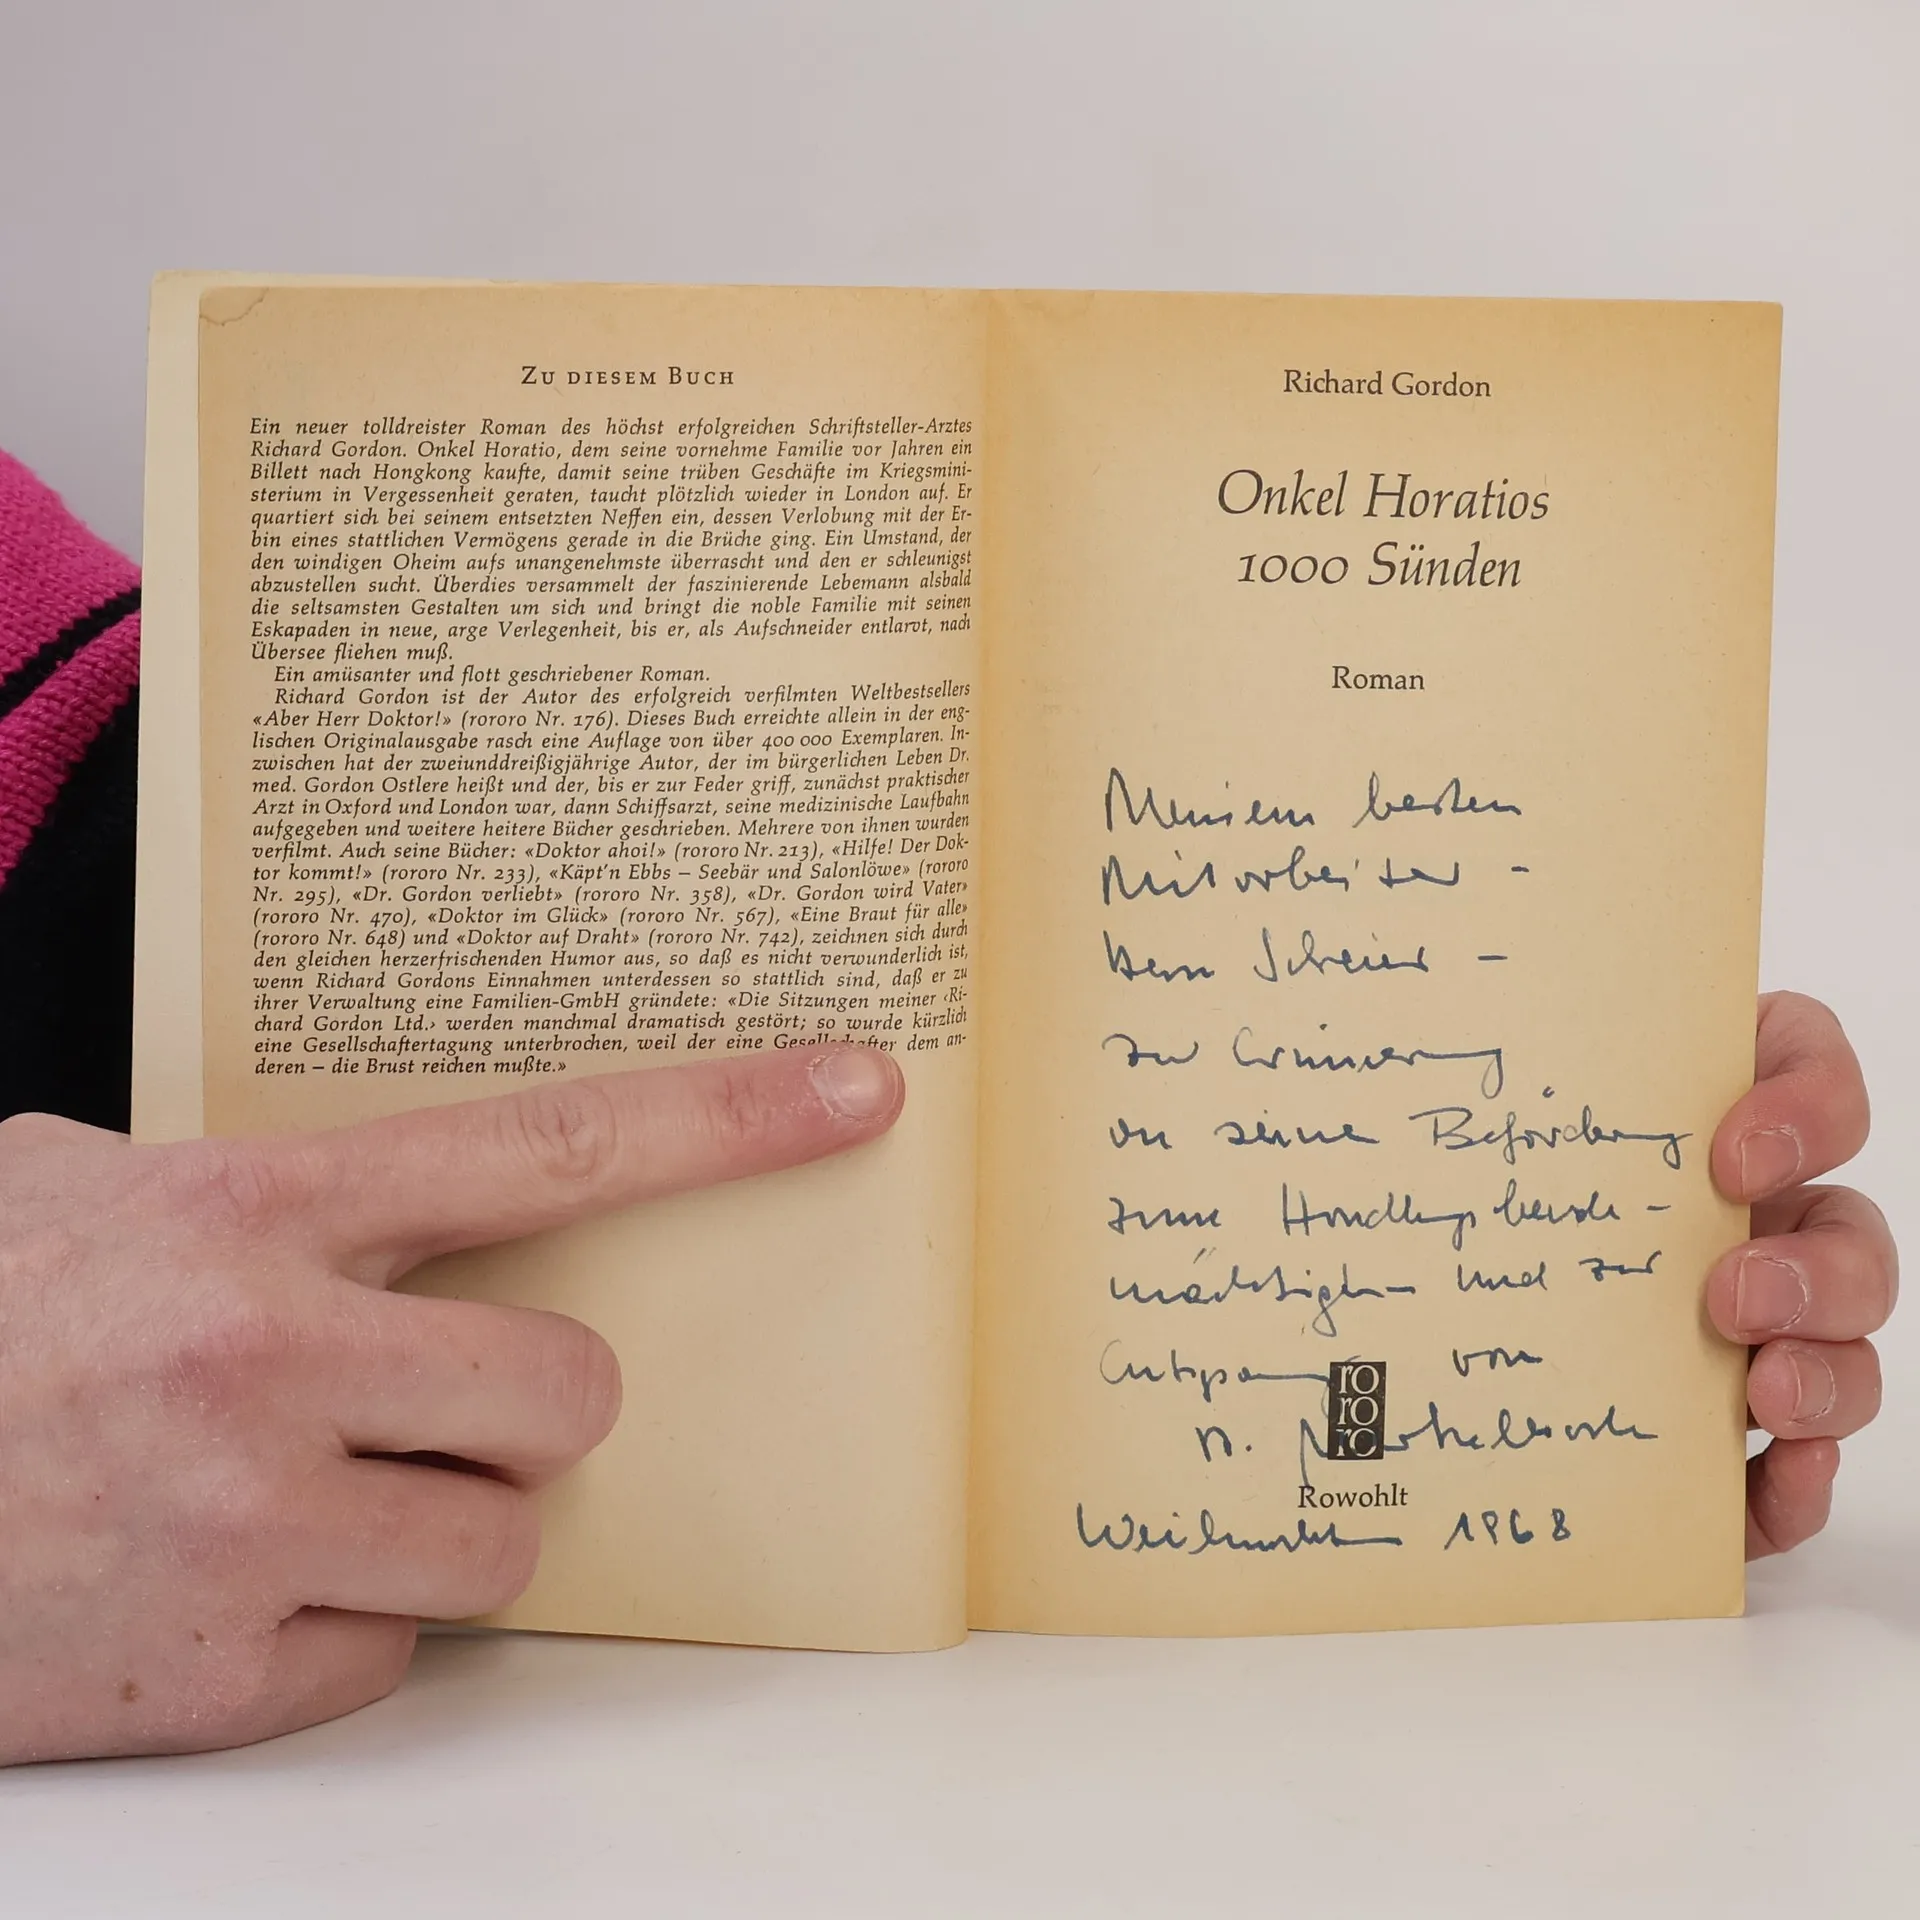 ZU DIESEM BUCH
Ein neuer tolldreister Roman des höchst erfolgreichen Schriftsteller-Arztes
Richard Gordon. Onkel Horatio, dem seine vornehme Familie vor Jahren ein
Billett nach Hongkong kaufte, damit seine trüben Geschäfte im Kriegsmini-
sterium in Vergessenheit geraten, taucht plötzlich wieder in London auf. Er
quartiert sich bei seinem entsetzten Neffen ein, dessen Verlobung mit der Er-
bin eines stattlichen Vermögens gerade in die Brüche ging. Ein Umstand, der
den windigen Oheim aufs unangenehmste überrascht und den er schleunigst
abzustellen sucht. Überdies versammelt der faszinierende Lebemann alsbald
die seltsamsten Gestalten um sich und bringt die noble Familie mit seinen
Eskapaden in neue, arge Verlegenheit, bis er, als Aufschneider entlarvt, nach
Übersee fliehen muß.
Ein amüsanter und flott geschriebener Roman.
Richard Gordon ist der Autor des erfolgreich verfilmten Weltbestsellers
«Aber Herr Doktor!» (rororo Nr. 176). Dieses Buch erreichte allein in der eng-
lischen Originalausgabe rasch eine Auflage von über 400 000 Exemplaren. In-
zwischen hat der zweiunddreißigjährige Autor, der im bürgerlichen Leben Dr.
med. Gordon Ostlere heißt und der, bis er zur Feder griff, zunächst praktischer
Arzt in Oxford und London war, dann Schiffsarzt, seine medizinische Laufbahn
aufgegeben und weitere heitere Bücher geschrieben. Mehrere von ihnen wurden
verfilmt. Auch seine Bücher: «Doktor ahoi!» (rororo Nr. 213), «Hilfe! Der Dok-
tor kommt!» (rororo Nr. 233), «Käpt'n Ebbs – Seebär und Salonlöwe» (rororo
Nr. 295), «Dr. Gordon verliebt» (rororo Nr. 358), «Dr. Gordon wird Vater»
(rororo Nr. 470), «Doktor im Glück» (rororo Nr. 567), «Eine Braut für alle»
(rororo Nr. 648) und «Doktor auf Draht» (rororo Nr. 742), zeichnen sich durch
den gleichen herzerfrischenden Humor aus, so daß es nicht verwunderlich ist,
wenn Richard Gordons Einnahmen unterdessen so stattlich sind, daß er zu
ihrer Verwaltung eine Familien-GmbH gründete: «Die Sitzungen meiner ‹Ri-
chard Gordon Ltd.› werden manchmal dramatisch gestört; so wurde kürzlich
eine Gesellschaftertagung unterbrochen, weil der eine Gesellschafter dem an-
deren – die Brust reichen mußte.»
Richard Gordon
Onkel Horatios
1000 Sünden
Roman
Meinem besten
Mitarbeiter -
Herrn -
zur Erinnerung
an seine Beförderung
zum Handlungsbevoll-
mächtigten und zur
Entspannung von
ro
ro
ro
Rowohlt
Weihnachten 1968